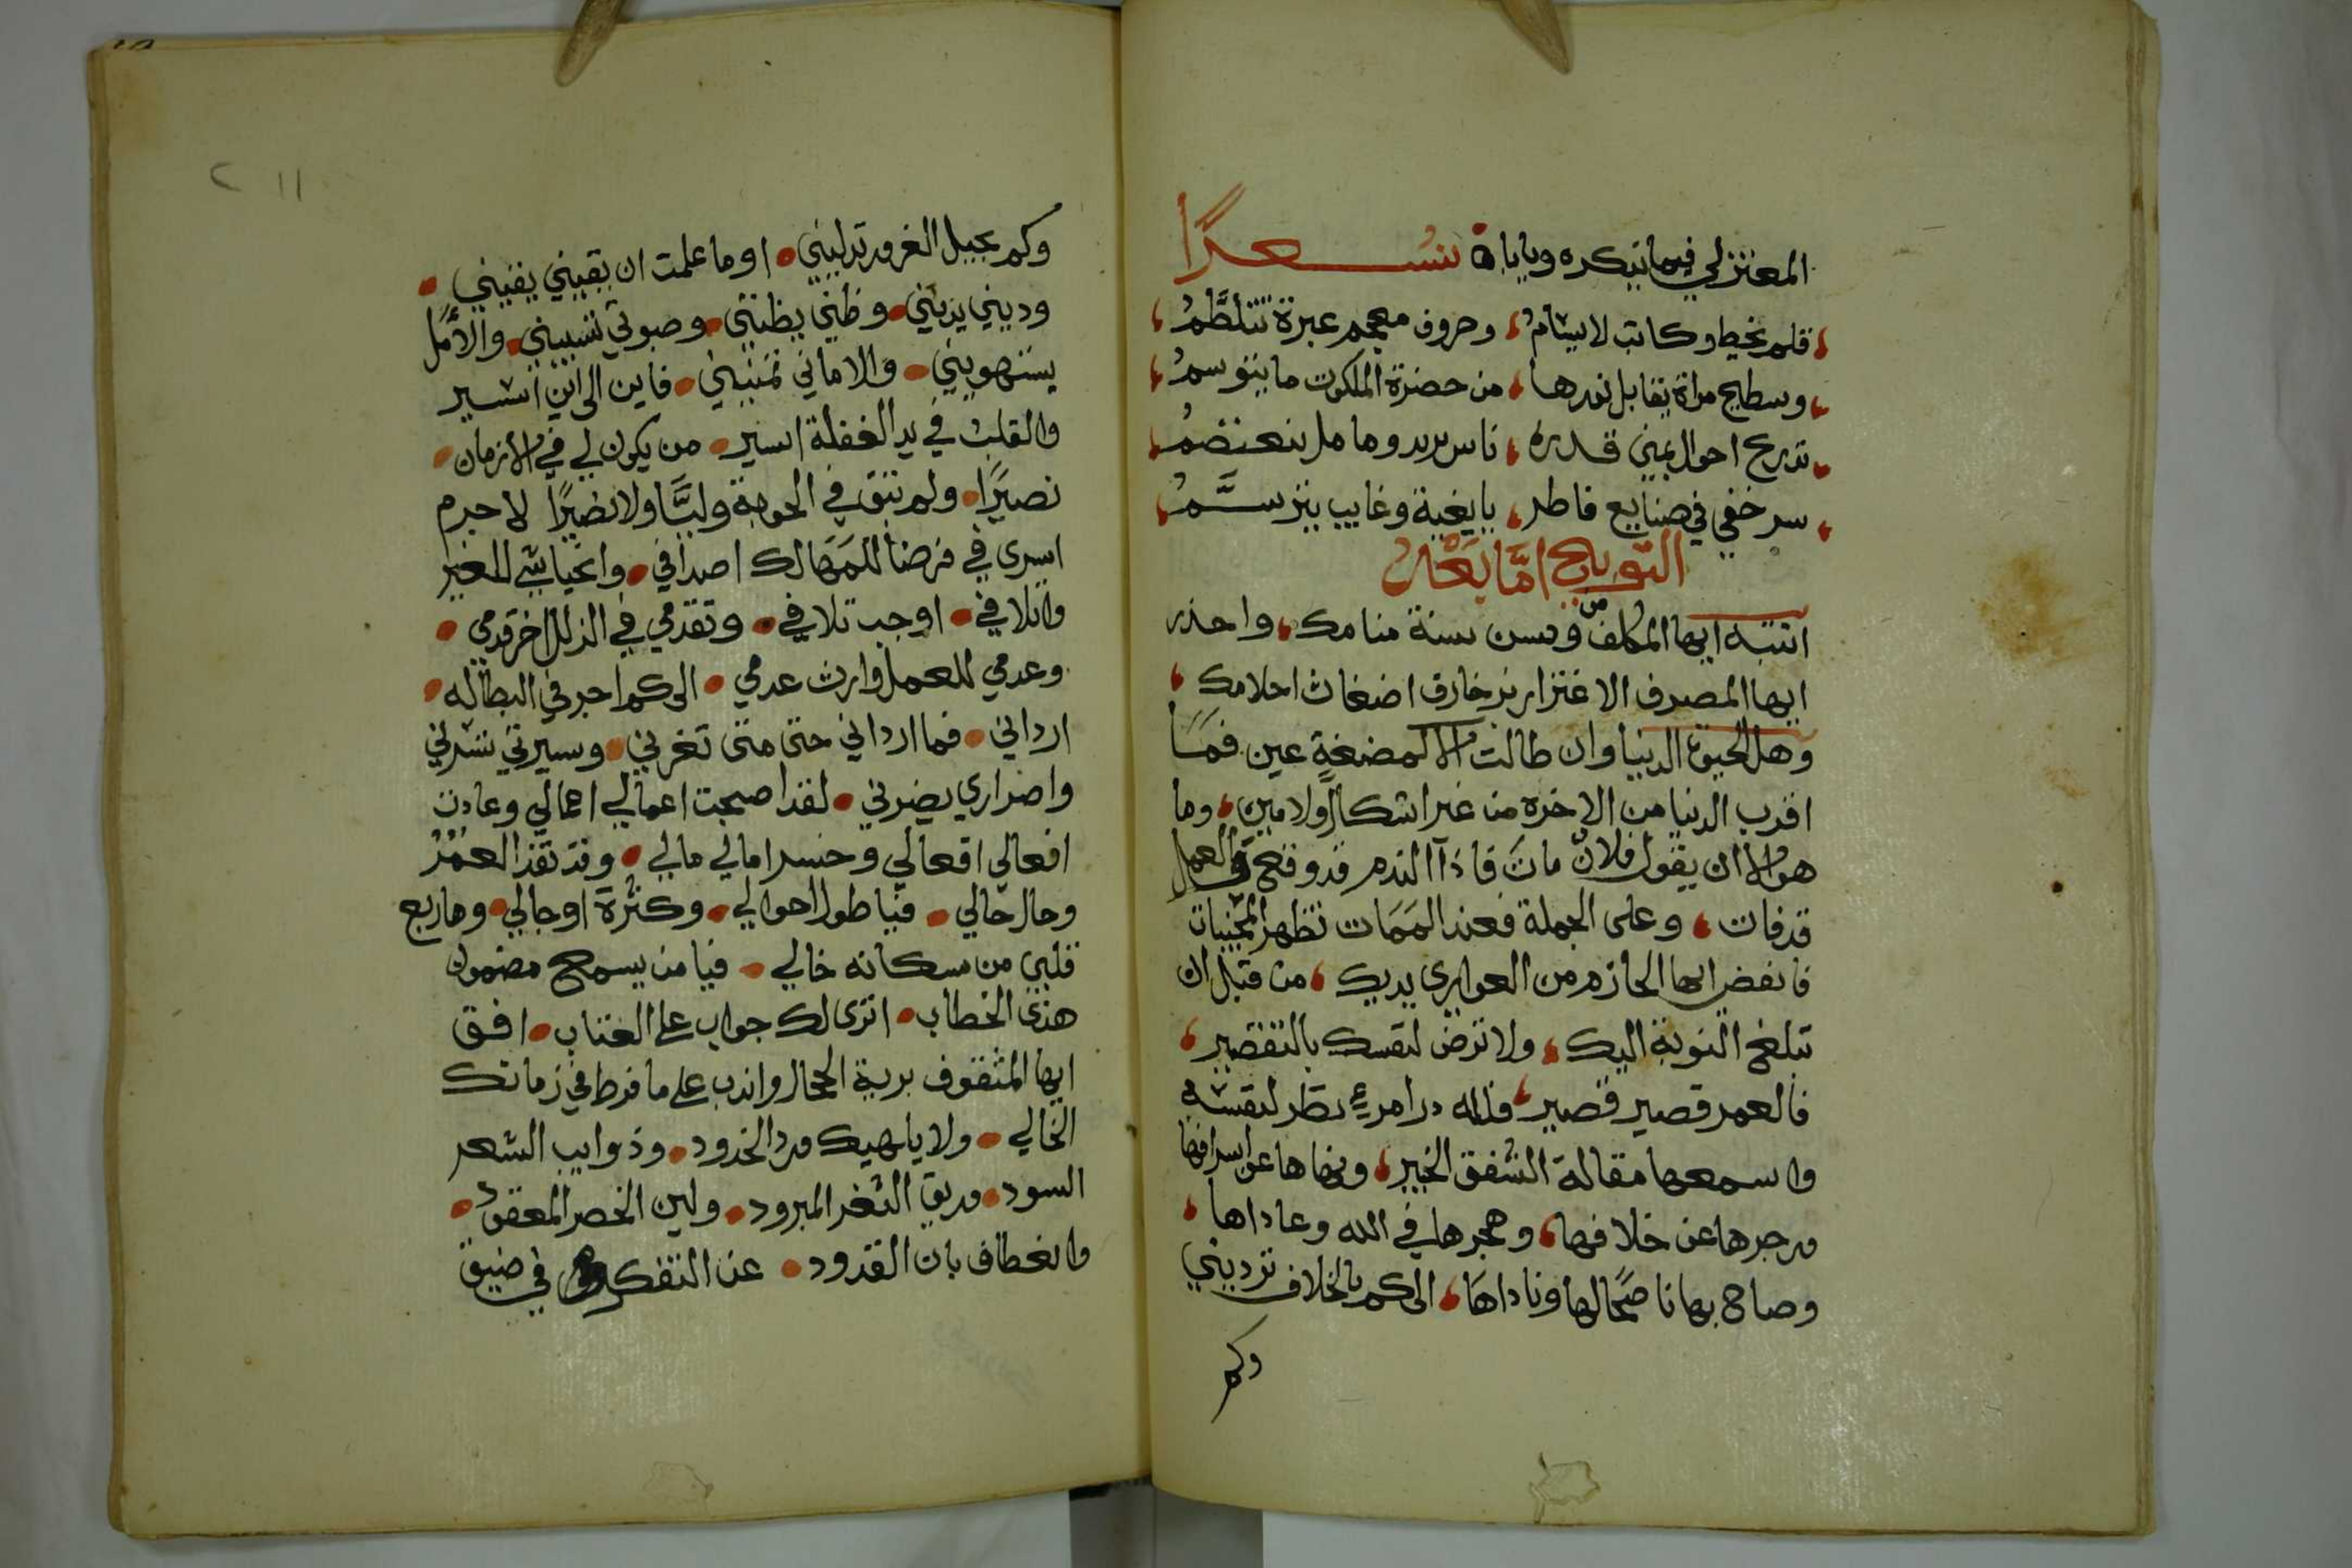 المعتزلي فيما ينكره وياباه شعرًا
قلم يخيط وكاتب لا يسام وحروف معجم عبرة تتلطم
وسطيح مراة يقابل نورها من حضرة الملكوت ما يتوسم
تدريج احوال يمني قدره ناس يريد وما مل يتعنصم
سر خفي في صنايع فاطر بايغية وغايب يترسم
التوبيخ امّا بعد
انتبه ايها المكلف من وسن سنة منامك واحذر
ايها المصرف الاغترار زخارف اضغاث احلامك
وهل الحيوة الدنيا وان طالت الا كمضغة عين فما
اقرب الدنيا من الاخرة من غير اشكال ولا مين وما
هو الا ان يقول فلان مات فاذا الندم قد وقع والعمل
قد فات وعلى الجملة فعند الممات تظهر المخبيات
فانفض ايها الحازم من العواري يديك من قبل ان
تبلغ النوبة اليك ولا ترض لنفسك بالتقصير
فالعمر قصير قصير فلله در امرء نظر لنفسه
واسمعها مقالة الشفق الخبير ونهاها عن اسرافها
وزجرها عن خلافها وهجرها في الله وعاداها
وصاح بها ناصحا لها وناداها الى كم بالخلاف ترديني
وكم
١١ ٢
وكم بحبل الغرور تدليني اوما علمت ان يقيني يقيني
وديني يزينني وظني يظنني وصبوتي تسبيني والأمل
يستهويني والاماني تمنيني فاين الى اين اسير
والقلب في يد الغفلة اسير من يكون لي في الازمان
نصيرًا ولم تبق في الحوبة وليًّا ولا نصيرًا لا جرم
اسرى في فرضا للمهالك اصدافي وانحياشي للغير
واتلافي اوجب تلافي وتقدمي في الزلل اخر قدمي
وعدمي للعمل وارث عدمي الى كم اجر في البطاله
ارداني فما ارداني حتى متى تغرني وسيرتي تسرني
واضراري يضرني لقد اصبحت اعمالي اعمالي وعادت
افعالي افعالي وخسر امالي مالي وقد نفذ العمر
وحال حالي فيا طول احوالي وكثرة اوجالي وما ربع
قلبي من سكانه خالي فيا من يسمع مضمون
هذى الخطاب اترى لك جواب على العتاب افق
ايها المشغوف بربة الحجال واندب على ما فرط في زمانك
الخالي ولا يلهيك ورد الخدود وذوايب الشعر
السود وريق الثغر المبرود ولين الخصر المعقود
وانعطاف بان القدود عن التفكر في ضيق